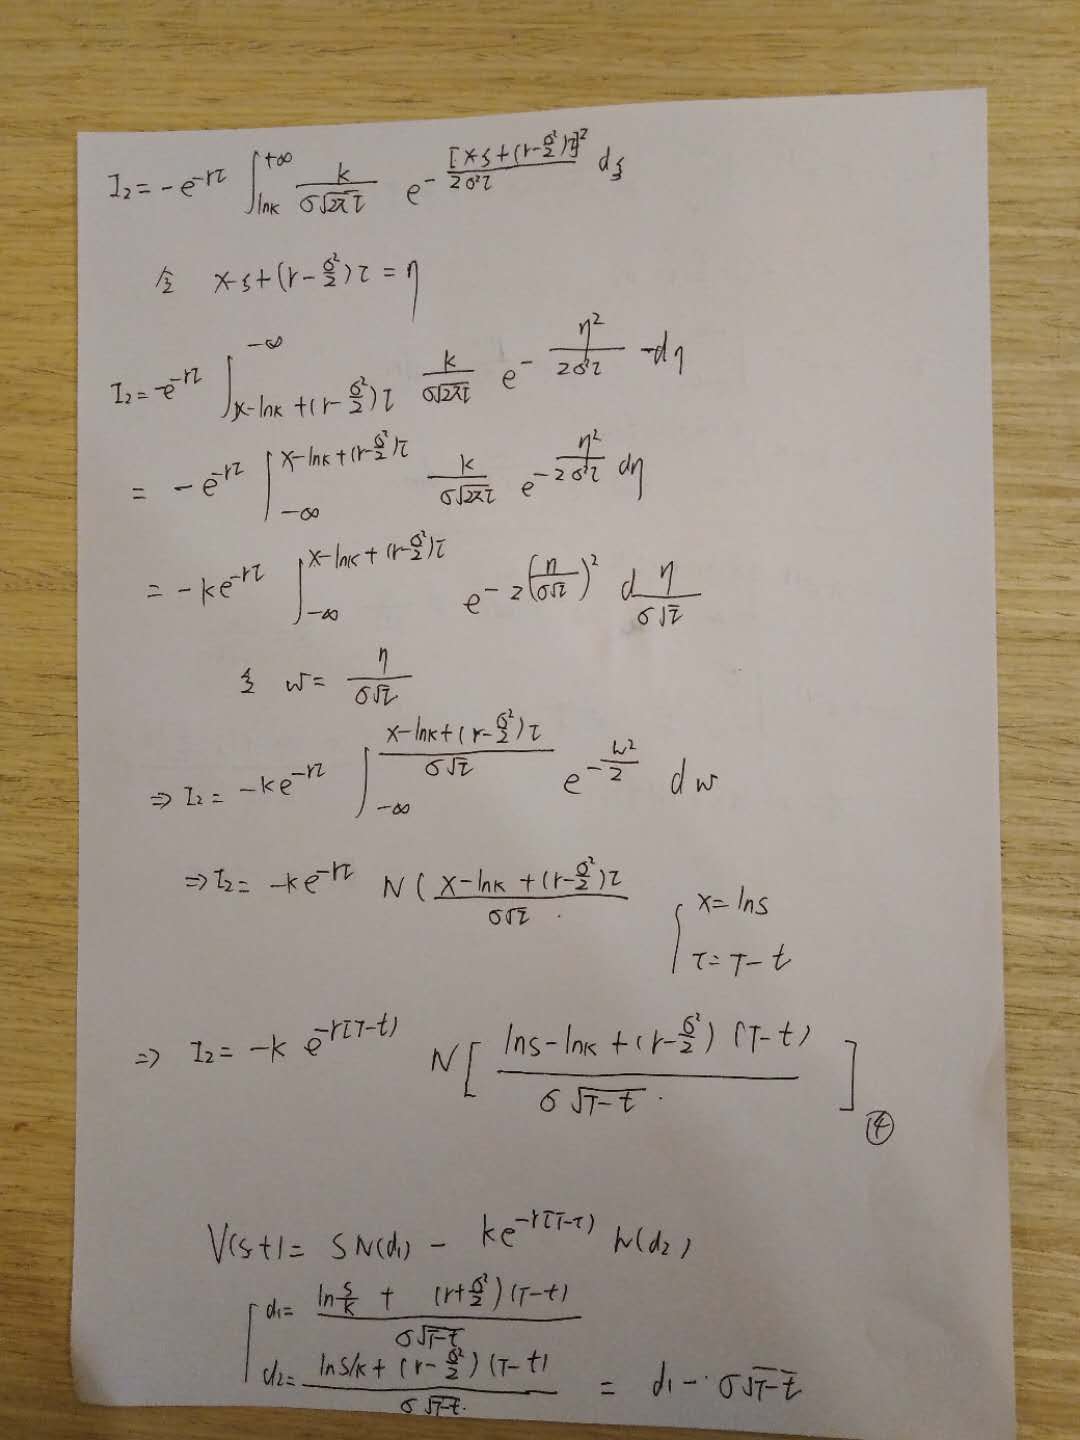 I₂ = -e^{-rτ} ∫_{lnK}^{+∞} \frac{K}{σ\sqrt{2πτ}} e^{-\frac{[x-ξ+(r-\frac{σ²}{2})τ]²}{2σ²τ}} dξ
令 x-ξ+(r-\frac{σ²}{2})τ = η
I₂ = -e^{-rτ} ∫_{x-lnK+(r-\frac{σ²}{2})τ}^{-∞} \frac{K}{σ\sqrt{2πτ}} e^{-\frac{η²}{2σ²τ}} -dη
= -e^{-rτ} ∫_{-∞}^{x-lnK+(r-\frac{σ²}{2})τ} \frac{K}{σ\sqrt{2πτ}} e^{-\frac{η²}{2σ²τ}} dη
= -Ke^{-rτ} ∫_{-∞}^{x-lnK+(r-\frac{σ²}{2})τ} e^{-2(\frac{η}{σ\sqrt{τ}})²} d\frac{η}{σ\sqrt{τ}}
令 w = \frac{η}{σ\sqrt{τ}}
⇒ I₂ = -Ke^{-rτ} ∫_{-∞}^{\frac{x-lnK+(r-\frac{σ²}{2})τ}{σ\sqrt{τ}}} e^{-\frac{w²}{2}} dw
⇒ I₂ = -Ke^{-rτ} N(\frac{x-lnK+(r-\frac{σ²}{2})τ}{σ\sqrt{τ}}
{ x = lnS
τ = T-t
⇒ I₂ = -K e^{-r(T-t)} N[\frac{lnS-lnK+(r-\frac{σ²}{2})(T-t)}{σ\sqrt{T-t}}] ④
V(S,t) = SN(d₁) - Ke^{-r(T-τ)} N(d₂)
{ d₁ = \frac{ln\frac{S}{K} + (r+\frac{σ²}{2})(T-t)}{σ\sqrt{T-t}}
d₂ = \frac{lnS/K + (r-\frac{σ²}{2})(T-t)}{σ\sqrt{T-t}} = d₁ - σ\sqrt{T-t}